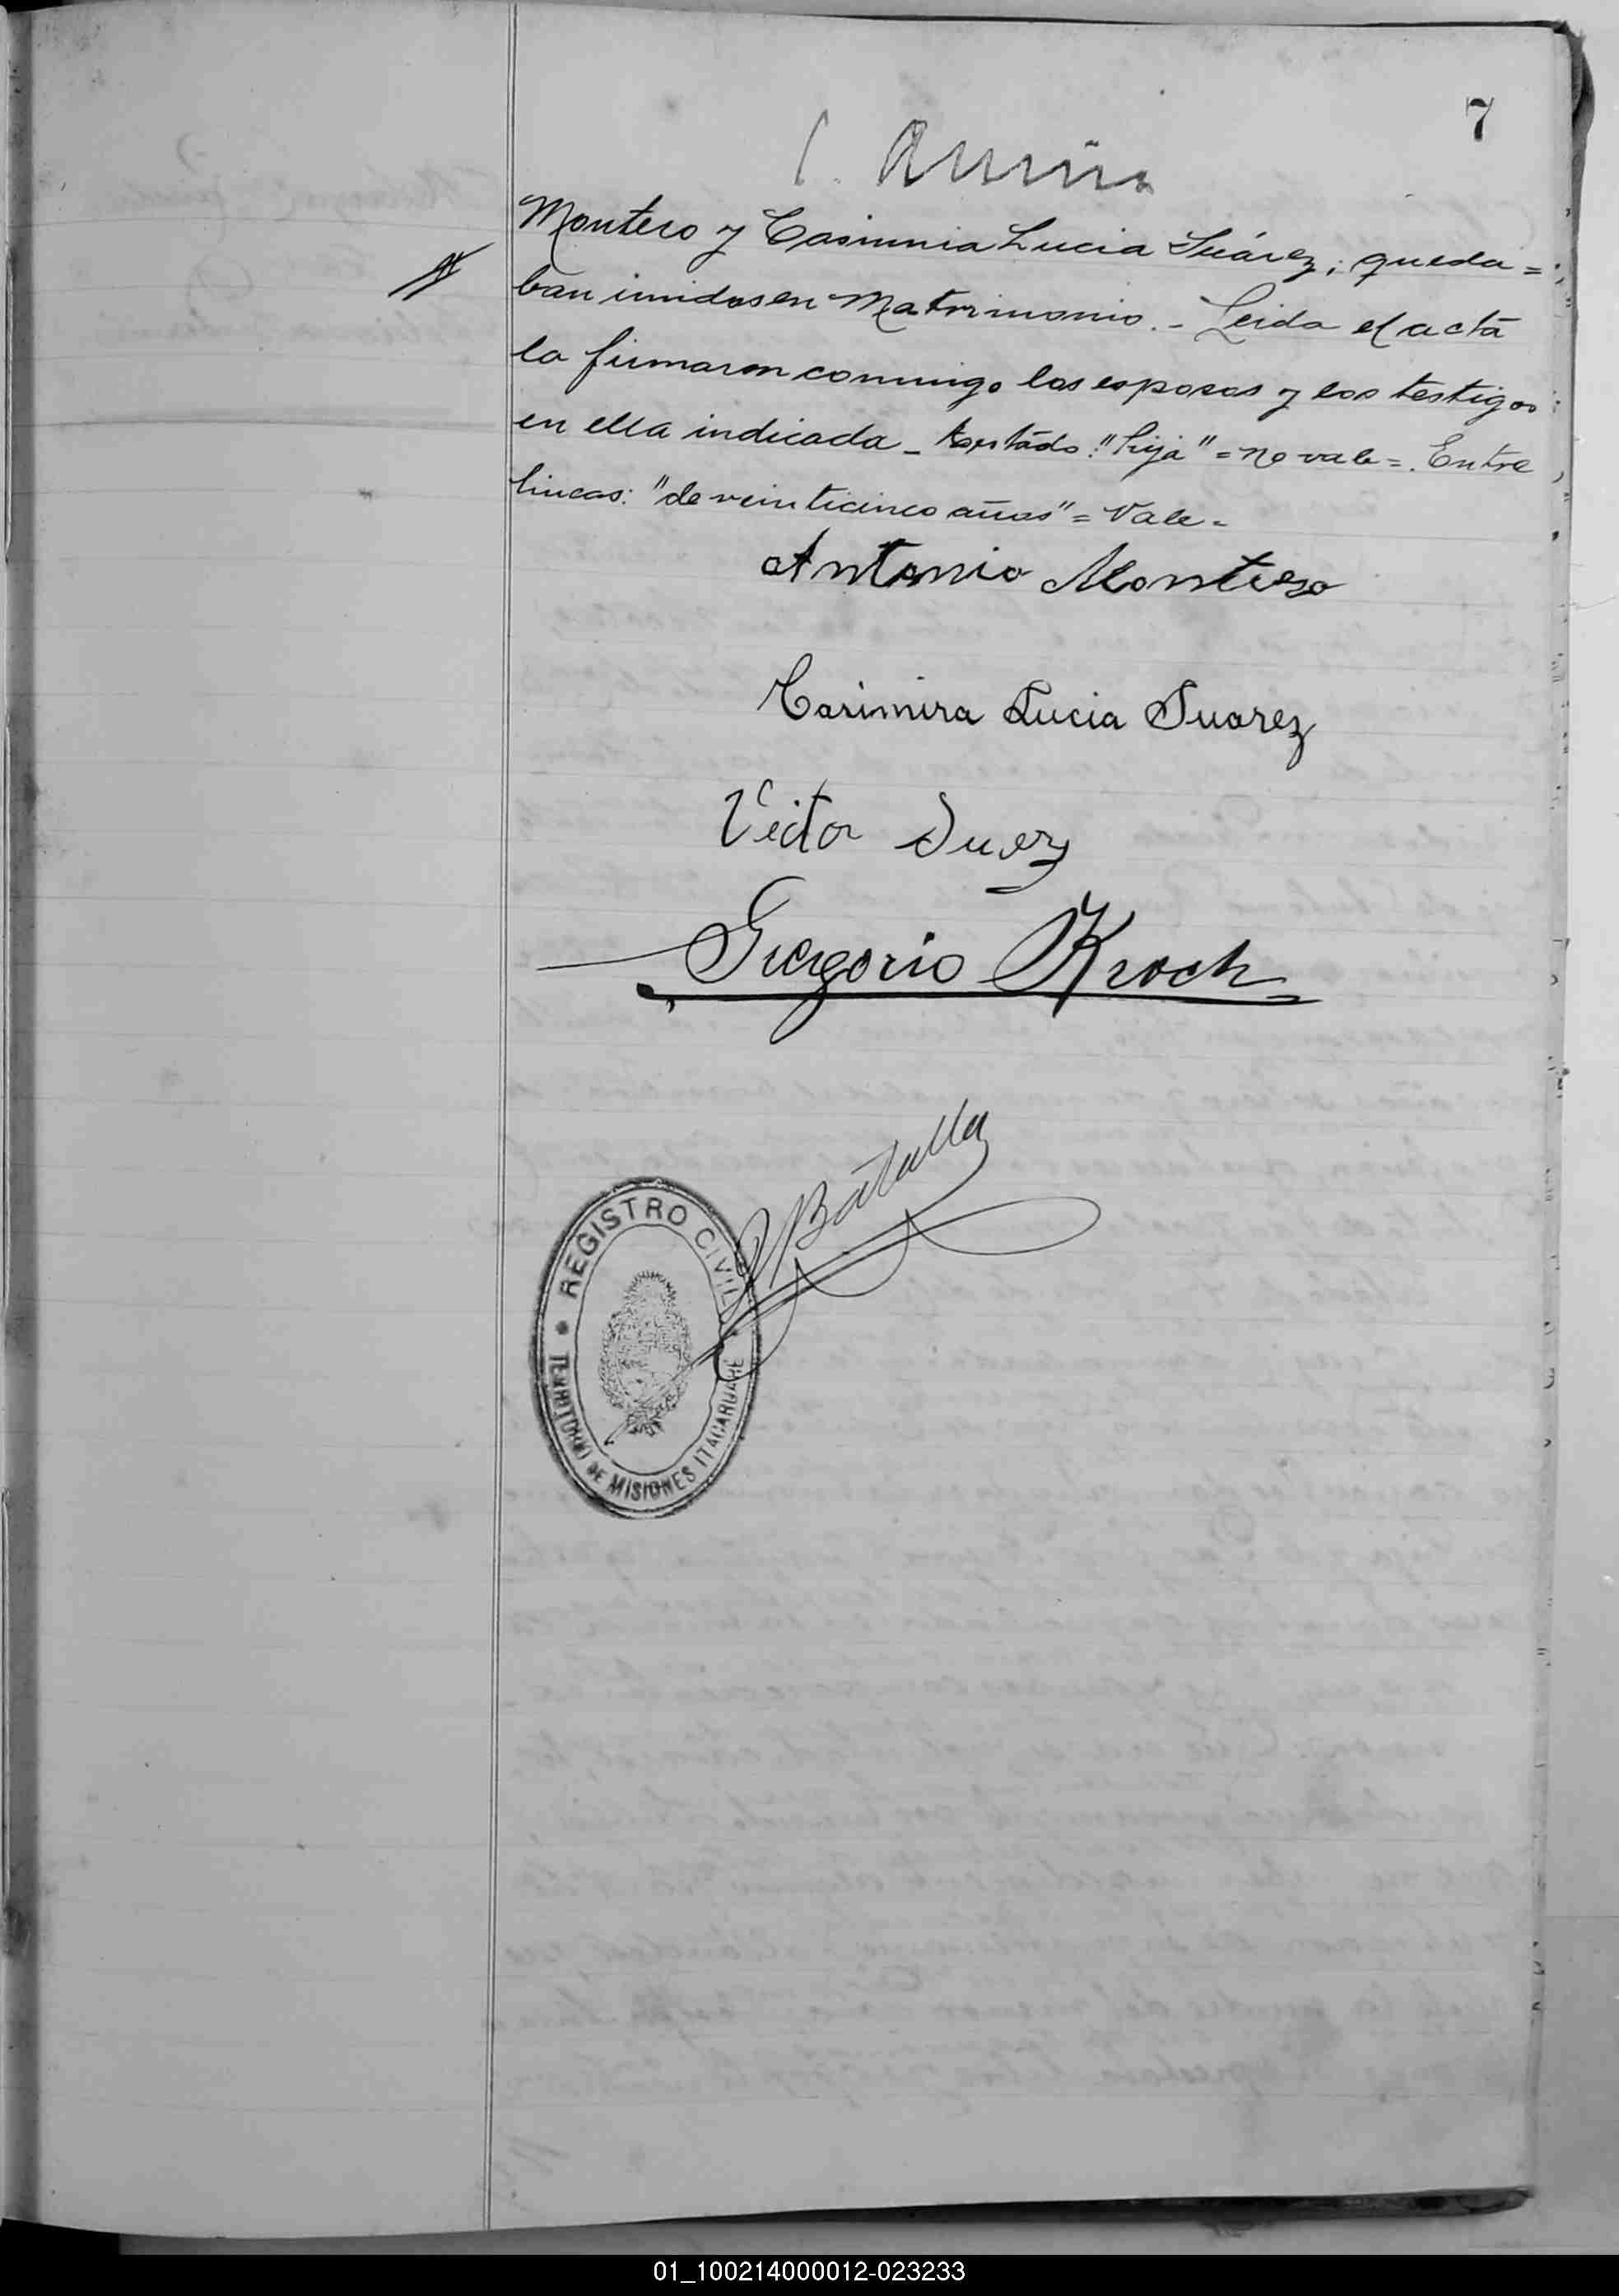 7
Montero y Casimira Lucia Suárez; queda=
ban unidos en Matrimonio.- Leida el acta
la firmaron conmigo los esposos y los testigos
en ella indicada - testádo: "hija" = no vale =. Entre
lineas: "de veinticinco años" = Vale -
Antonio Montero
Casimira Lucia Suarez
Victor
Gregorio Kroch
Batalla
REGISTRO CIVIL
TERRITORIO DE MISIONES ITACARUARE
01_100214000012-023233